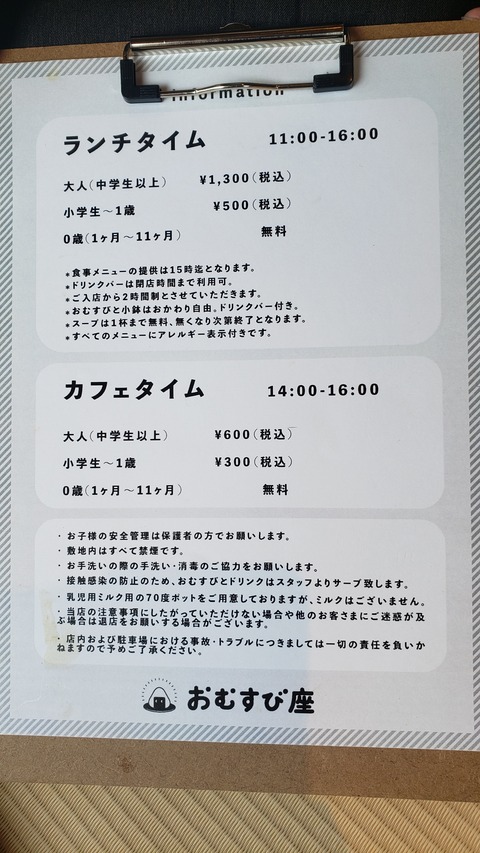 information
ランチタイム 11:00-16:00
大人(中学生以上) ¥1,300(税込)
小学生~1歳 ¥500(税込)
0歳(1ヶ月~11ヶ月) 無料
*食事メニューの提供は15時迄となります。
*ドリンクバーは閉店時間まで利用可。
*ご入店から2時間制とさせていただきます。
*おむすびと小鉢はおかわり自由。ドリンクバー付き。
*スープは1杯まで無料、無くなり次第終了となります。
*すべてのメニューにアレルギー表示付きです。
カフェタイム 14:00-16:00
大人(中学生以上) ¥600(税込)
小学生~1歳 ¥300(税込)
0歳(1ヶ月~11ヶ月) 無料
・お子様の安全管理は保護者の方でお願いします。
・敷地内はすべて禁煙です。
・お手洗いの際の手洗い・消毒のご協力をお願いします。
・接触感染の防止のため、おむすびとドリンクはスタッフよりサーブ致します。
・乳児用ミルク用の70度ポットをご用意しておりますが、ミルクはございません。
・当店の注意事項にしたがっていただけない場合や他のお客さまにご迷惑が及
ぶ場合は退店をお願いする場合がございます。
・店内および駐車場における事故・トラブルにつきましては一切の責任を負いか
ねますので予めご了承ください。
おむすび座